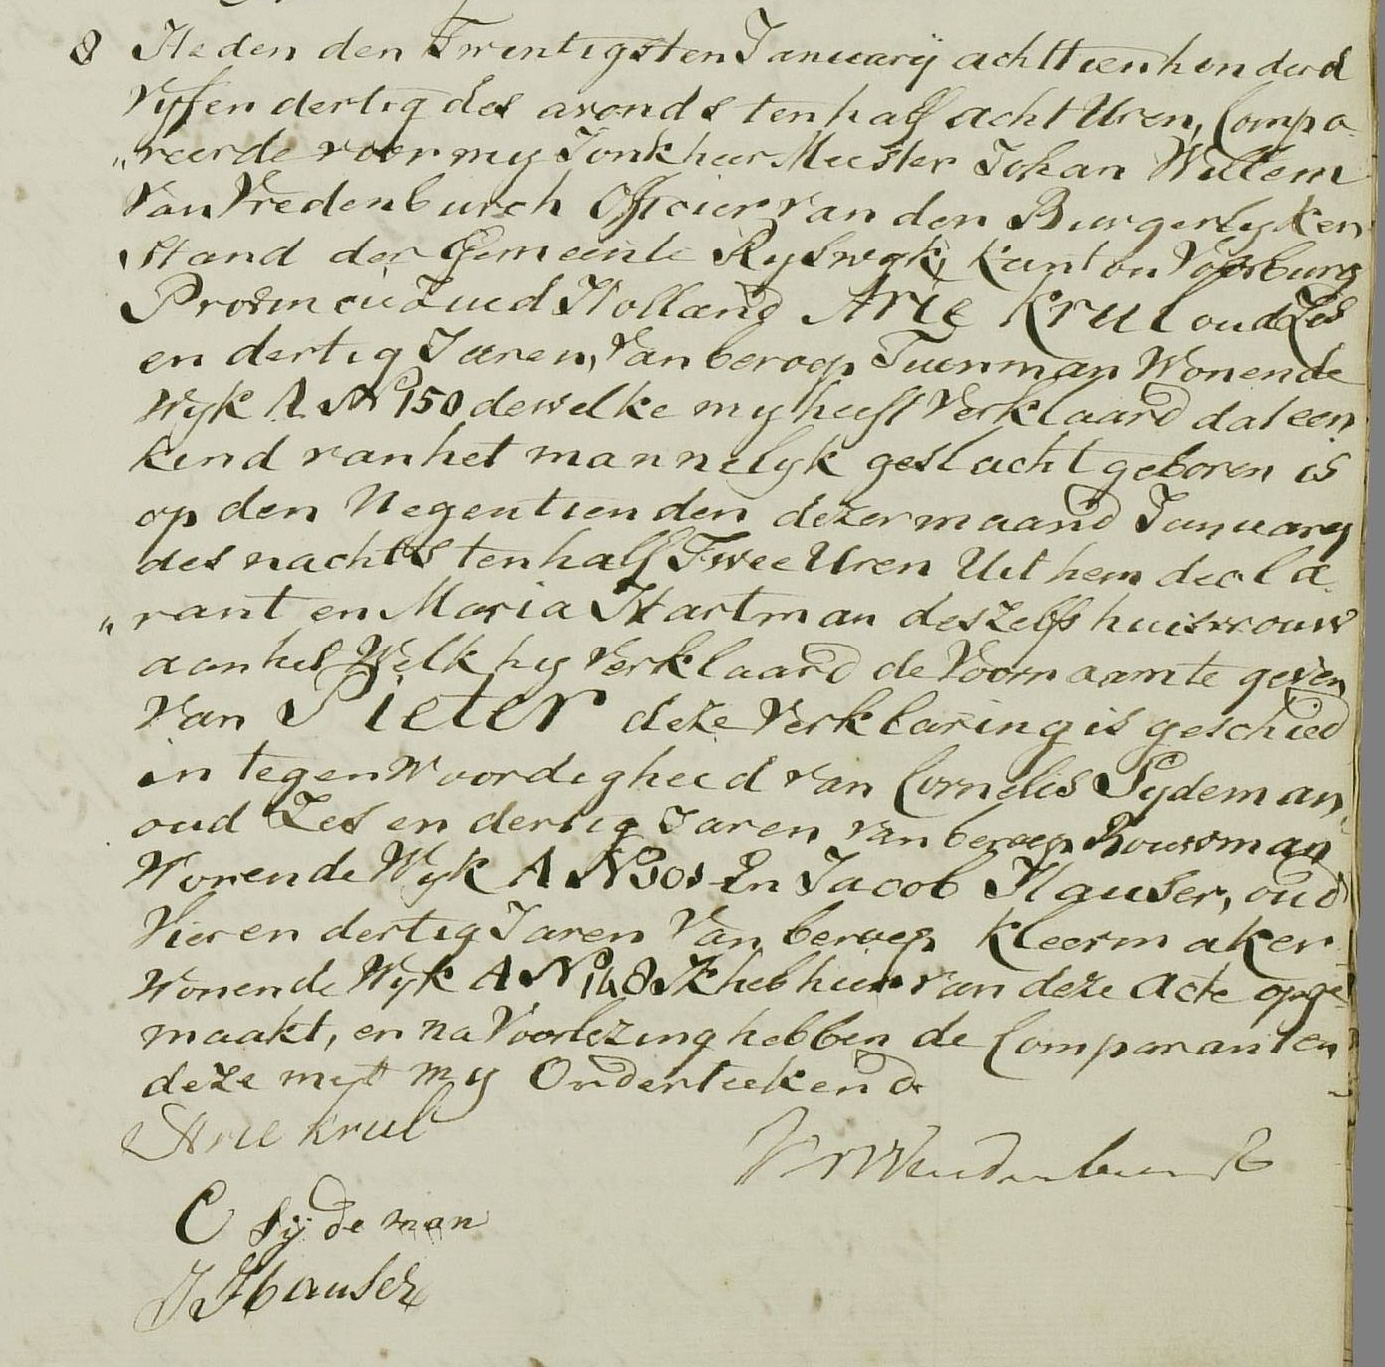 8 Heden den Twintigsten Januarij achttienhonderd
Vyf en dertig des avonds ten half acht Uren, Compa-
„reerde voor my Jonkheer Meester Johan Willem
Van Vredenburch Officier van den Burgerlyken
Stand der Gemeente Ryswyk, Kanton Voorburg
Provincie Zuid Holland Arie Krul oud Zes
en dertig Jaren, Van beroep Tuinman Wonende
Wyk A No 150 dewelke my heeft Verklaard dat een
kind van het mannelyk geslacht geboren is
op den Negentienden dezer maand January
des nachts ten half Twee Uren Uit hem decla-
„rant en Maria Hartman deszelfs huisvrouw
aan het Welk hy Verklaard de Voornaam te geven
Van Pieter deze Verklaring is geschied
in tegenwoordigheid van Cornelis Sydeman,
oud Zes en dertig Jaren van beroep Bouwman
Wonende Wyk A No En Jacob Hauser, oud
Vier en dertig Jaren Van beroep Kleermaker
Wonende Wyk A No 148 Ik heb hier van deze Acte opge-
maakt, en na Voorlezing hebben de Comparanten
deze met my Ondertekend
Arie Krul
C Sijdeman
J Hauser